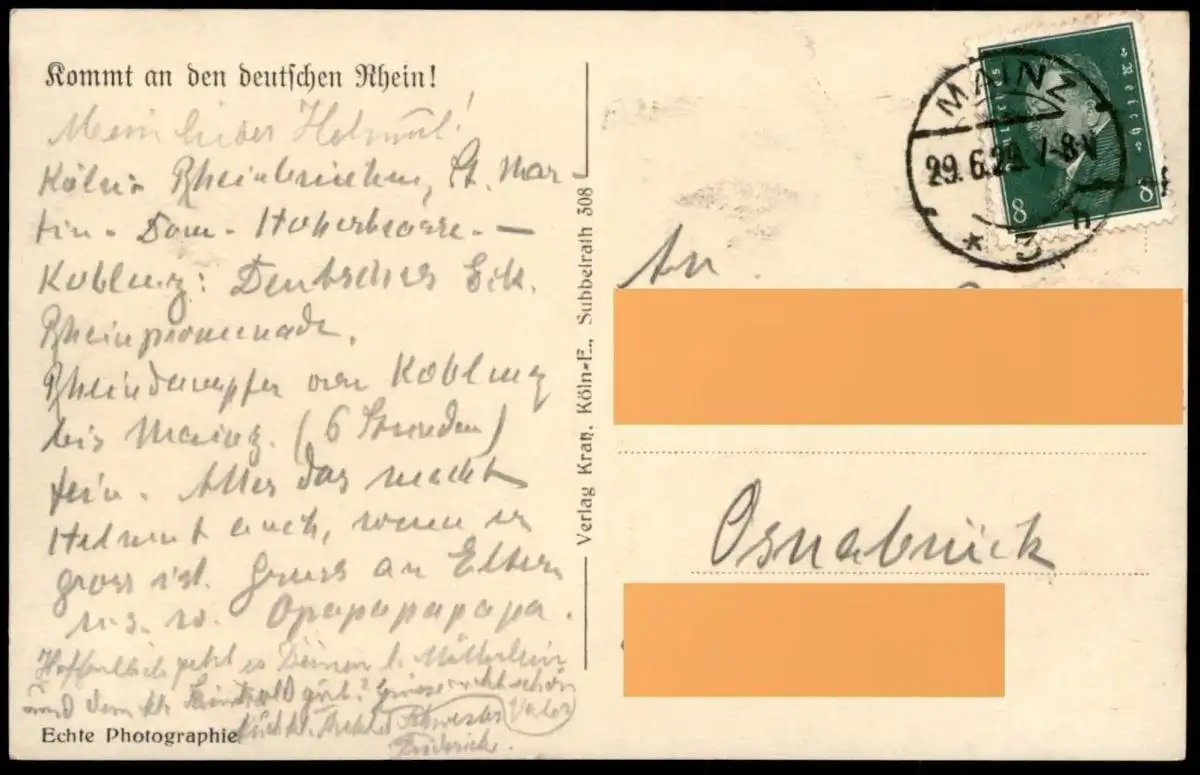 Kommt an den deutschen Rhein!
Mein lieber Helmut!
Köln: Rheinbrücken, St. Mar-
tin - Dom - Hoherstrasse. -
Koblenz: Deutsches Eck.
Rheinpromenade.
Rheindampfer von Koblenz
bis Mainz. (6 Stunden)
fein. Alles das macht
Helmut auch, wenn er
gross ist. Gruss an Eltern
u.s.w. Opapapapapa.
Hoffentlich geht es Deinem l. Mütterlein
und dem kl. gut? Grüsse schön
Vater
Schwester
Echte Photographie
Verlag Kratz, Köln-E., Subbelrath 308
MAINZ
29.6.29. 7-8V
* 3 h
Deutsches Reich
8 8
An
Osnabrück